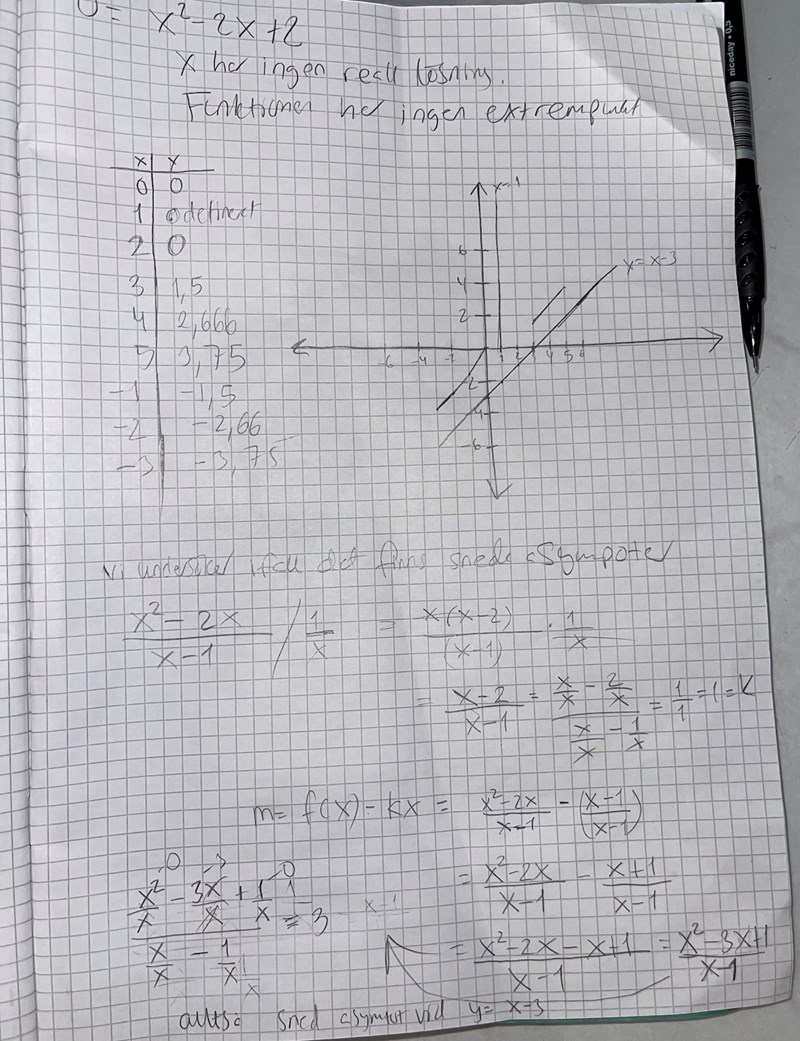 0 = x² - 2x + 2
x har ingen reell lösning.
Funktionen har ingen extrempunkt
x | y
0 | 0
1 | odefinierat
2 | 0
3 | 1,5
4 | 2,666
5 | 3,75
-1 | -1,5
-2 | -2,66
-3 | -3,75
x=1
y=x-3
6
4
2
-6 -4 -2 1 2 4 5 6
2
-4
-6
niceday • 0,5
vi undersöker ifall det finns sneda asympoter
(x² - 2x)/(x-1) / 1/x = x(x-2)/(x-1) · 1/x
= (x-2)/(x-1) = (x/x - 2/x)/(x/x - 1/x) = 1/1 = 1 = k
m = f(x) - kx = (x²-2x)/(x-1) - (x-1)/(x-1)
= (x²-2x)/(x-1) - (x+1)/(x-1)
= (x²-2x-x+1)/(x-1) = (x²-3x+1)/(x-1)
(x²/x - 3x/x + 1/x)/(x/x - 1/x) = 3
alltså sned asymtot vid y = x-3